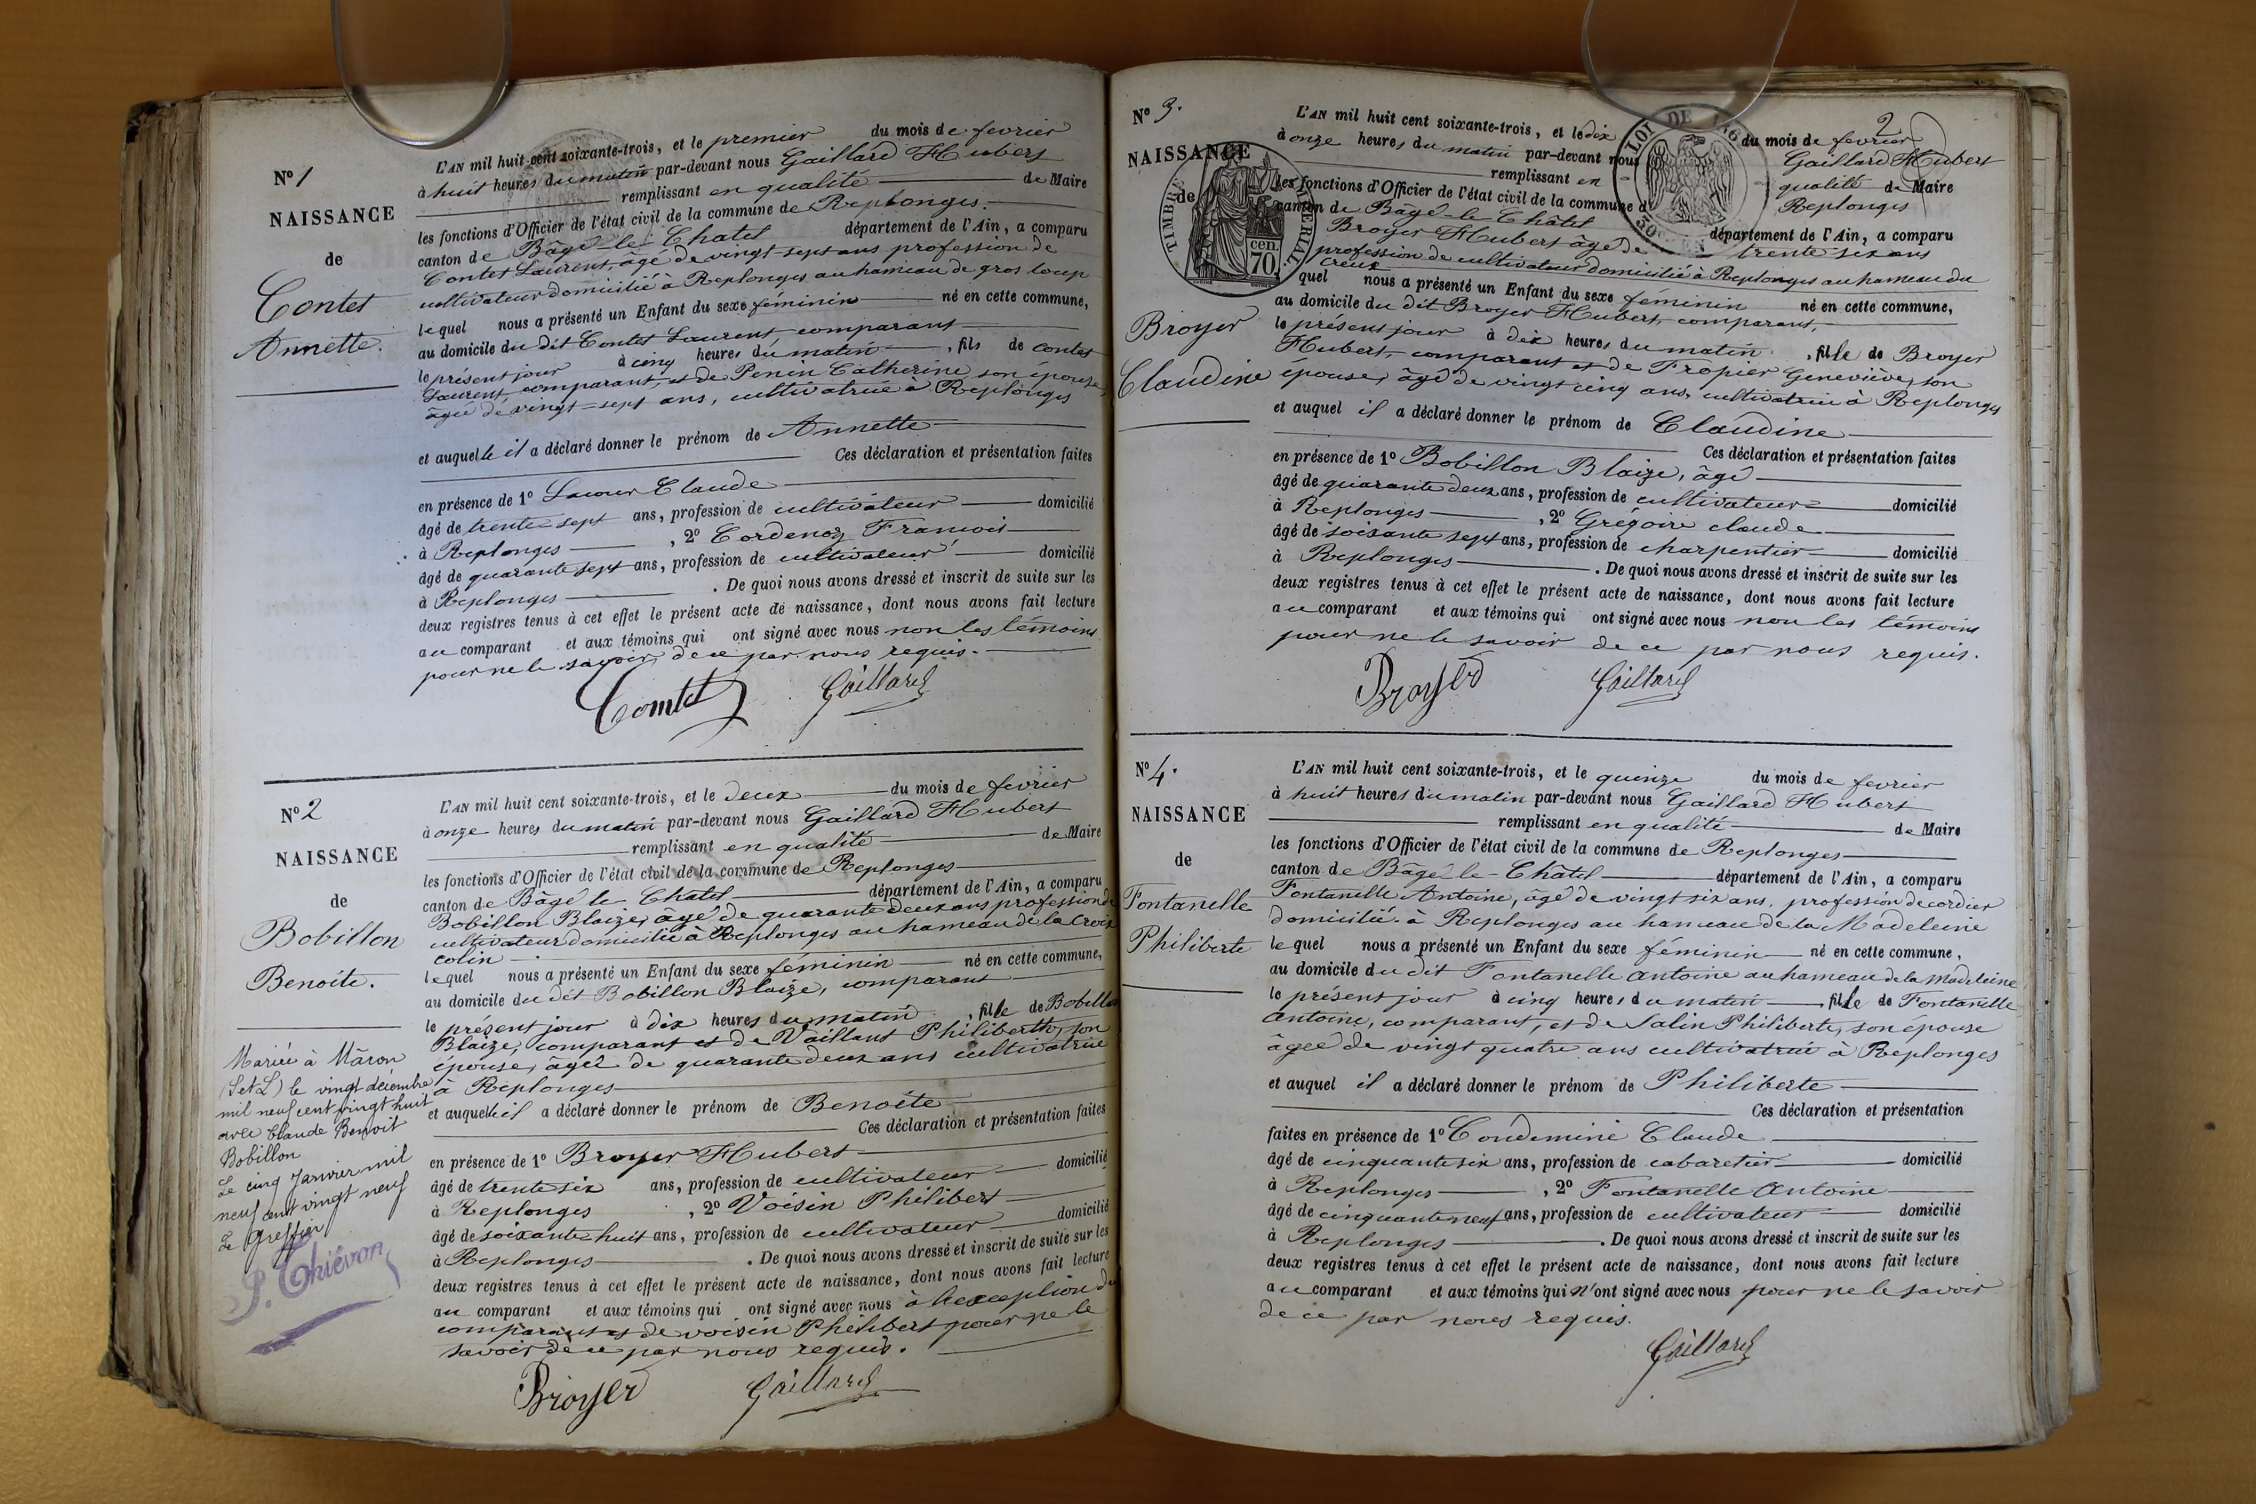 N° 1
NAISSANCE
de
Contet
Annette.
L'AN mil huit cent soixante-trois, et le premier du mois de fevrier
à huit heures du matin par-devant nous Gaillard Hubert
remplissant en qualité de Maire
les fonctions d'Officier de l'état civil de la commune de Replonges.
canton de Bâgé-le-Chatel département de l'Ain, a comparu
Contet Laurent, âgé de vingt-sept ans profession de
cultivateur domicilié à Replonges au hameau de gros loup
lequel nous a présenté un Enfant du sexe féminin né en cette commune,
au domicile du dit Contet Laurent comparant
le présent jour à cinq heures du matin, fils de contet
Laurent, comparant et de Penin Catherine son épouse
âgée de vingt-sept ans, cultivatrice à Replonges
et auquelle il a déclaré donner le prénom de Annette
Ces déclaration et présentation faites
en présence de 1° Lacour Claude
âgé de trente-sept ans, profession de cultivateur domicilié
à Replonges, 2° Cordenoz Francois
âgé de quarante sept ans, profession de cultivateur domicilié
à Replonges. De quoi nous avons dressé et inscrit de suite sur les
deux registres tenus à cet effet le présent acte de naissance, dont nous avons fait lecture
au comparant et aux témoins qui ont signé avec nous non les témoins
pour ne le savoir de ce par nous requis.
Comtet Gaillard
N° 2
NAISSANCE
de
Bobillon
Benoite.
Mariée à Mâcon
(S et L) le vingt décembre
mil neuf cent vingt huit
avec Claude Benoit
Bobillon
Le cinq Janvier mil
neuf cent vingt neuf
Le Greffier
P. Thiévon
L'AN mil huit cent soixante-trois, et le deux du mois de fevrier
à onze heures du matin par-devant nous Gaillard Hubert
remplissant en qualité de Maire
les fonctions d'Officier de l'état civil de la commune de Replonges
canton de Bâgé le Chatel département de l'Ain, a comparu
Bobillon Blaize, âgé de quarante deux ans profession de
cultivateur domicilié à Replonges au hameau de la Croix
colin
lequel nous a présenté un Enfant du sexe féminin né en cette commune,
au domicile du dit Bobillon Blaize, comparant
le présent jour à dix heures du matin, fille de Bobillon
Blaize, comparant et de Vaillant Philiberthe, son
épouse, âgée de quarante deux ans cultivatrice
à Replonges
et auquelle il a déclaré donner le prénom de Benoite
Ces déclaration et présentation faites
en présence de 1° Broyer Hubert
âgé de trente six ans, profession de cultivateur domicilié
à Replonges, 2° Voisin Philibert
âgé de soixante-huit ans, profession de cultivateur domicilié
à Replonges. De quoi nous avons dressé et inscrit de suite sur les
deux registres tenus à cet effet le présent acte de naissance, dont nous avons fait lecture
au comparant et aux témoins qui ont signé avec nous à l'exception du
comparant et de voisin Philibert pour ne le
savoir de ce par nous requis.
Broyer Gaillard
2
N° 3.
NAISSANCE
de
TIMBRE IMPERIAL
70 cen.
LOI DE
50 CEN
Broyer
Claudine
L'AN mil huit cent soixante-trois, et le dix du mois de fevrier
à onze heures du matin par-devant nous Gaillard Hubert
remplissant en qualité de Maire
les fonctions d'Officier de l'état civil de la commune de Replonges
canton de Bâgé-le-Châtel département de l'Ain, a comparu
Broyer Hubert âgé de trente six ans
profession de cultivateur domicilié à Replonges au hameau du
creux
quel nous a présenté un Enfant du sexe féminin né en cette commune,
au domicile du dit Broyer Hubert, comparant,
le présent jour à dix heures du matin, fille de Broyer
Hubert, comparant et de Fropier Geneviève, son
épouse, âgé de vingt cinq ans, cultivatrice à Replonges
et auquel il a déclaré donner le prénom de Claudine
Ces déclaration et présentation faites
en présence de 1° Bobillon Blaize, âgé
âgé de quarante deux ans, profession de cultivateur domicilié
à Replonges, 2° Grégoire claude
âgé de soixante sept ans, profession de charpentier domicilié
à Replonges. De quoi nous avons dressé et inscrit de suite sur les
deux registres tenus à cet effet le présent acte de naissance, dont nous avons fait lecture
au comparant et aux témoins qui ont signé avec nous non les témoins
pour ne le savoir de ce par nous requis.
Broyer Gaillard
N° 4.
NAISSANCE
de
Fontanelle
Philiberte
L'AN mil huit cent soixante-trois, et le quinze du mois de fevrier
à huit heures du matin par-devant nous Gaillard Hubert
remplissant en qualité de Maire
les fonctions d'Officier de l'état civil de la commune de Replonges
canton de Bâgé-le-Châtel département de l'Ain, a comparu
Fontanelle Antoine, âgé de vingt six ans, profession de cordier
domicilié à Replonges au hameau de la Madeleine
lequel nous a présenté un Enfant du sexe féminin né en cette commune,
au domicile du dit Fontanelle antoine au hameau de la madeleine
le présent jour à cinq heures du matin, fille de Fontanelle
Antoine, comparant, et de Salin Philiberte, son épouse
âgée de vingt quatre ans cultivatrice à Replonges
et auquel il a déclaré donner le prénom de Philiberte
Ces déclaration et présentation
faites en présence de 1° Condeminé Claude
âgé de cinquante six ans, profession de cabaretier domicilié
à Replonges, 2° Fontanelle Antoine
âgé de cinquante neuf ans, profession de cultivateur domicilié
à Replonges. De quoi nous avons dressé et inscrit de suite sur les
deux registres tenus à cet effet le présent acte de naissance, dont nous avons fait lecture
au comparant et aux témoins qui n'ont signé avec nous pour ne le savoir
de ce par nous requis.
Gaillard